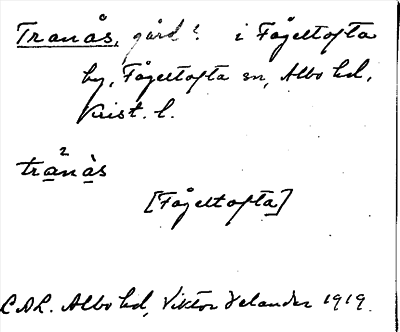 Tranås, gård? i Fågeltofta
by, Fågeltofta sn, Albo hd,
Krist. l.
2
tranås
[Fågeltofta]
L.A.L. Albo hd, Viktor Velander 1919.